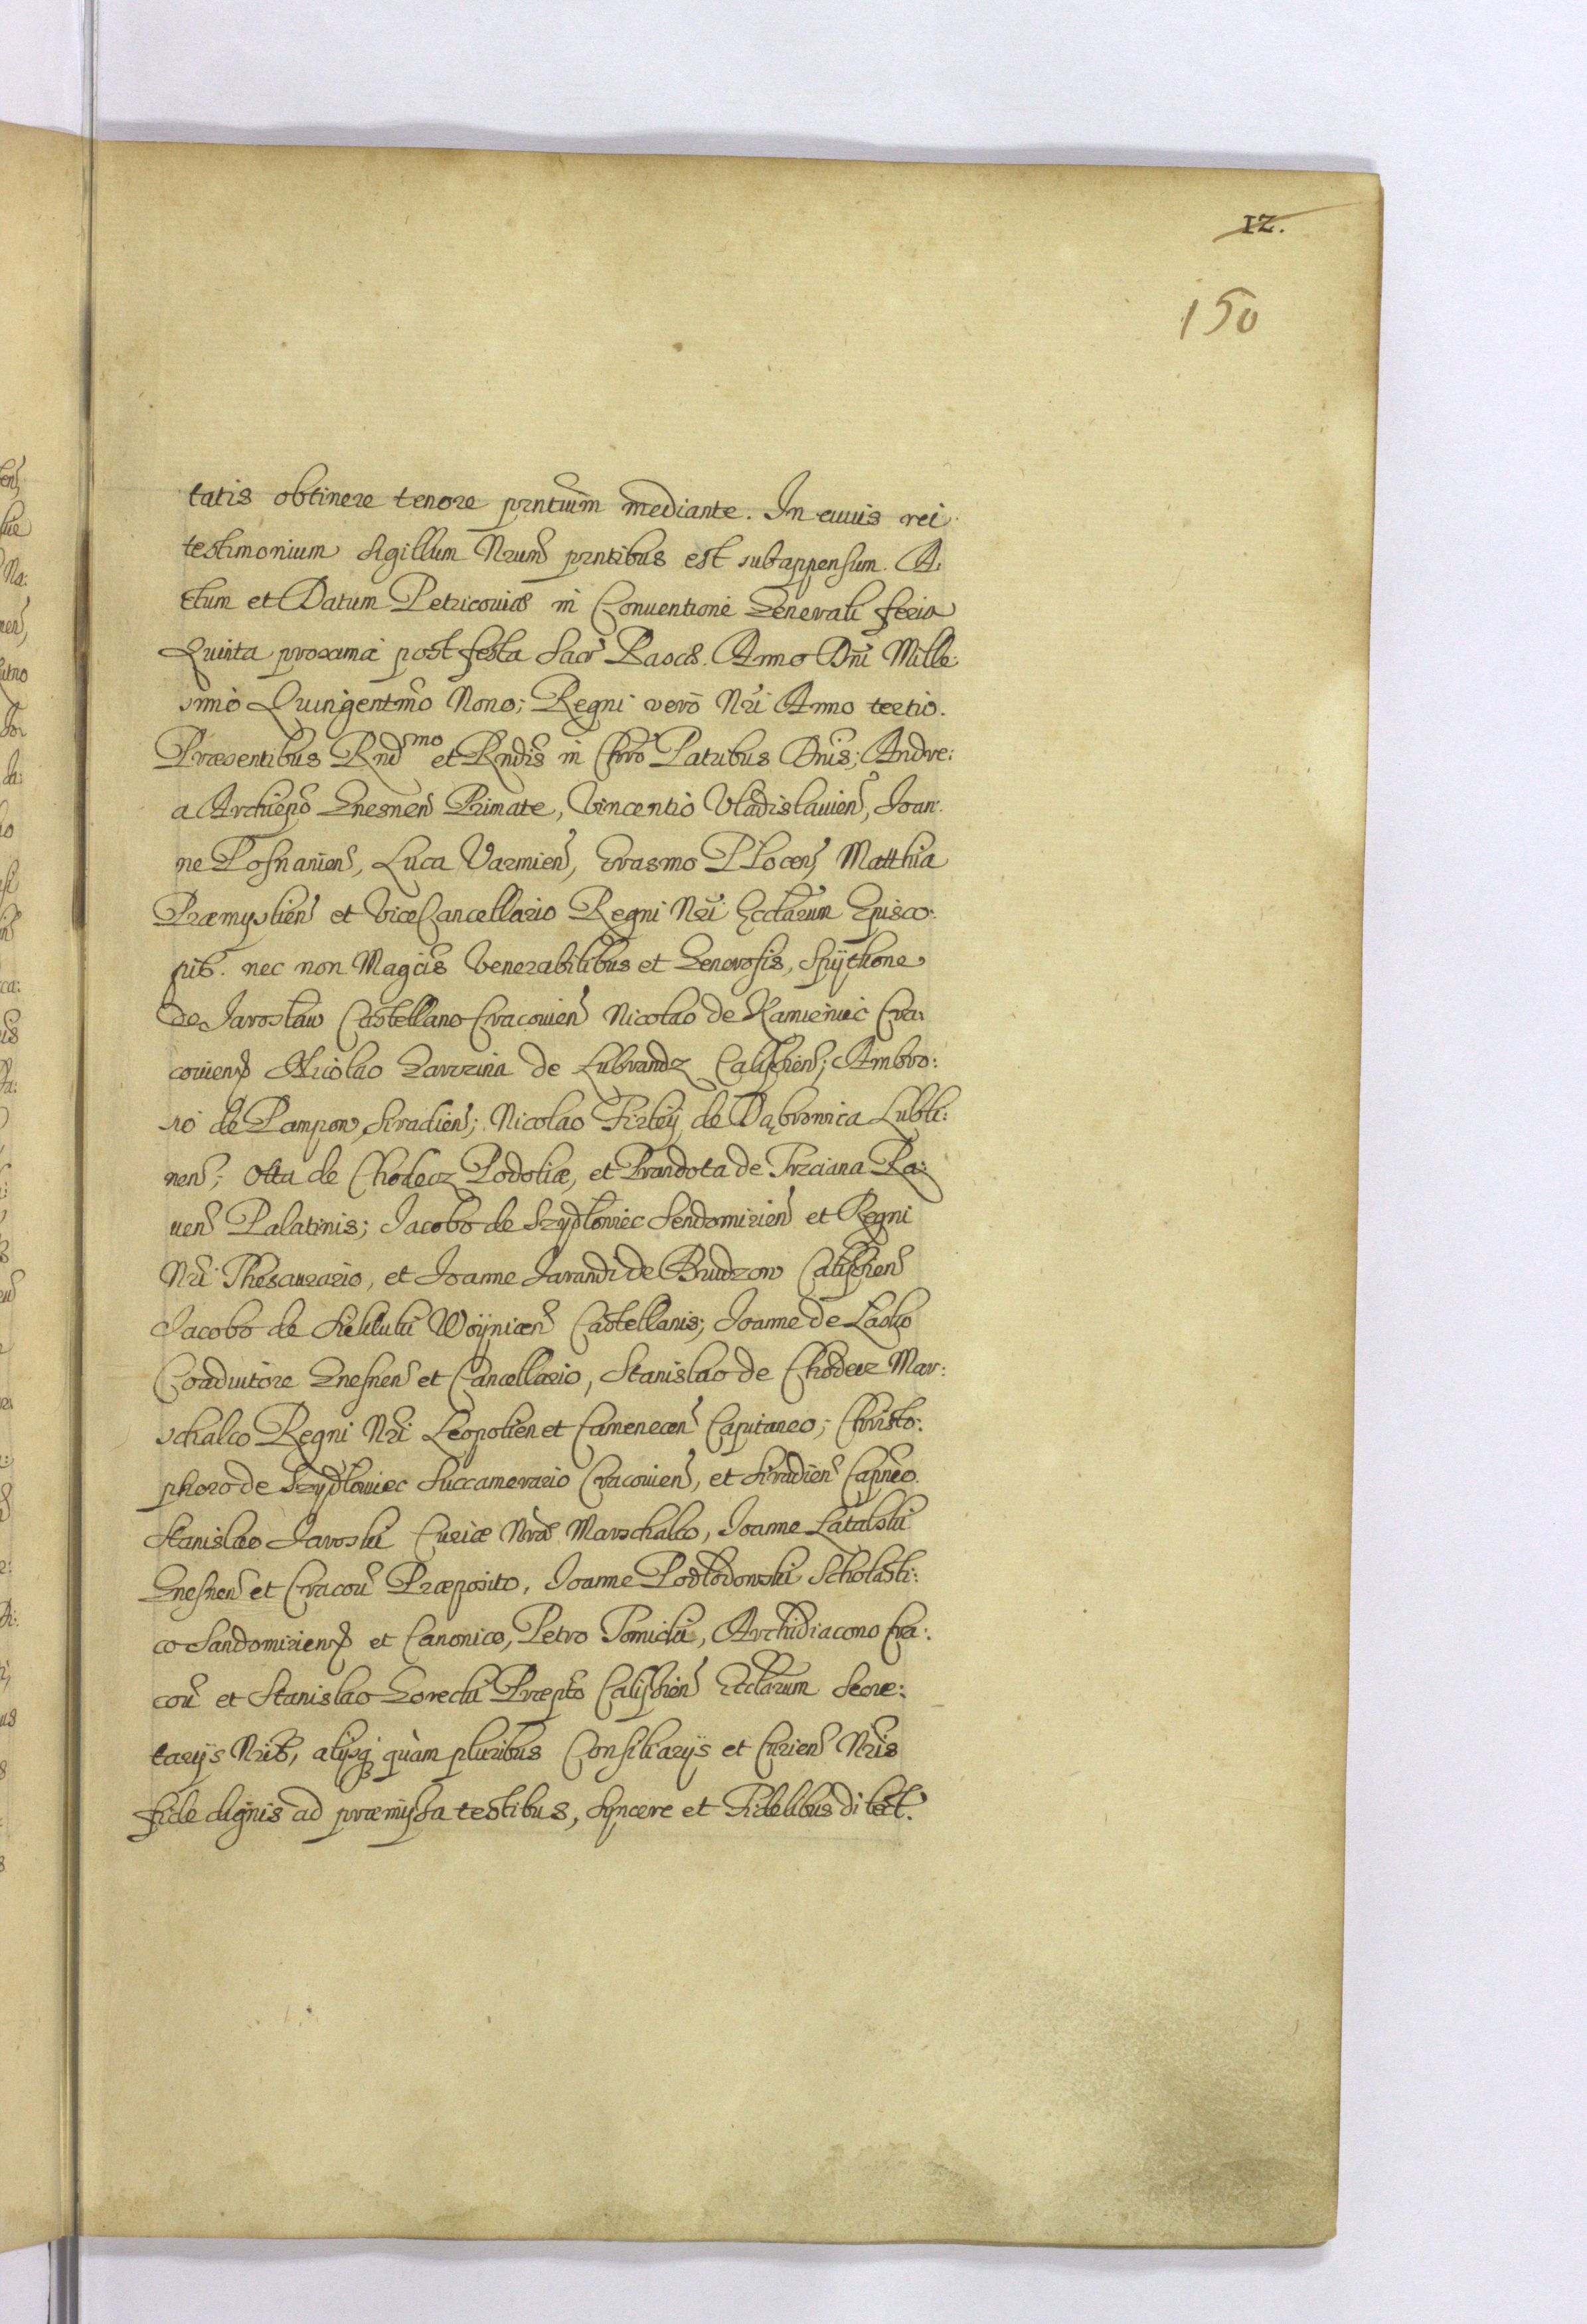 12.
150
tatis obtinere tenore prntium mediante. In cuius rei
testimonium Sigillum Nrum prntibus est subappensum. A:
ctum et Datum Petricouiæ in Conuentione Generali feria
Quinta proxima post festa Sacr Pasch. Anno Dni Mille:
simo Quingentmo Nono; Regni vero Nri Anno tertio.
Præsentibus Rndmo et Rndis in Chro Patribus Dnis; Andre:
a Archiepo Gnesnen Primate, Vincentio Vladislauien, Joan:
ne Posnanien, Luca Varmien, Erasmo Plocen, Matthia
Præmyslien et ViceCancellario Regni Nri Ecclarum Episco:
pib. nec non Magcis Venerabilibus et Generosis, Spÿthone
de Jaroslaw Castellano Cracouien Nicolao de Kamieniec Cra:
couien Nicolao Gavrzina de Lubrancz Calischien; Ambro:
sio de Pampow Siradien; Nicolao Firleÿ de Dąbrowica Lubli:
nen; Otta de Chodecz Podoliæ, et Prandota de Trzciana Ra:
uen Palatinis; Jacobo de Szydlowiec Sendomirien et Regni
Nri Thesaurario, et Joanne Jarandi de Brudzow Calischien
Jacobo de Sieklukii Woÿnicen Castellanis; Joanne de Lasko
Coadiutore Gnesnen et Cancellario, Stanislao de Chodecz Mar:
schalco Regni Nri Leopolien et Camenecen Capitaneo; Christo:
phoro de Szydlowiec Succamerario Cracouien, et Siradien Capneo.
Stanislao Jaroski Curiæ Nræ Marschalco, Joanne Latalski
Gnesnen et Cracou Præposito, Joanne Podlodowski Scholasti:
co Sandomirien et Canonico, Petro Tomicki, Archidiacono Cra:
cou et Stanislao Gorecki Præpto Calischien Ecclarum Secre:
tarÿs Nrib, alÿsq quàm pluribus Consiliarÿs et Curien Nris
fide dignis ad præmissa testibus, Syncere et Fidelibus dilect.